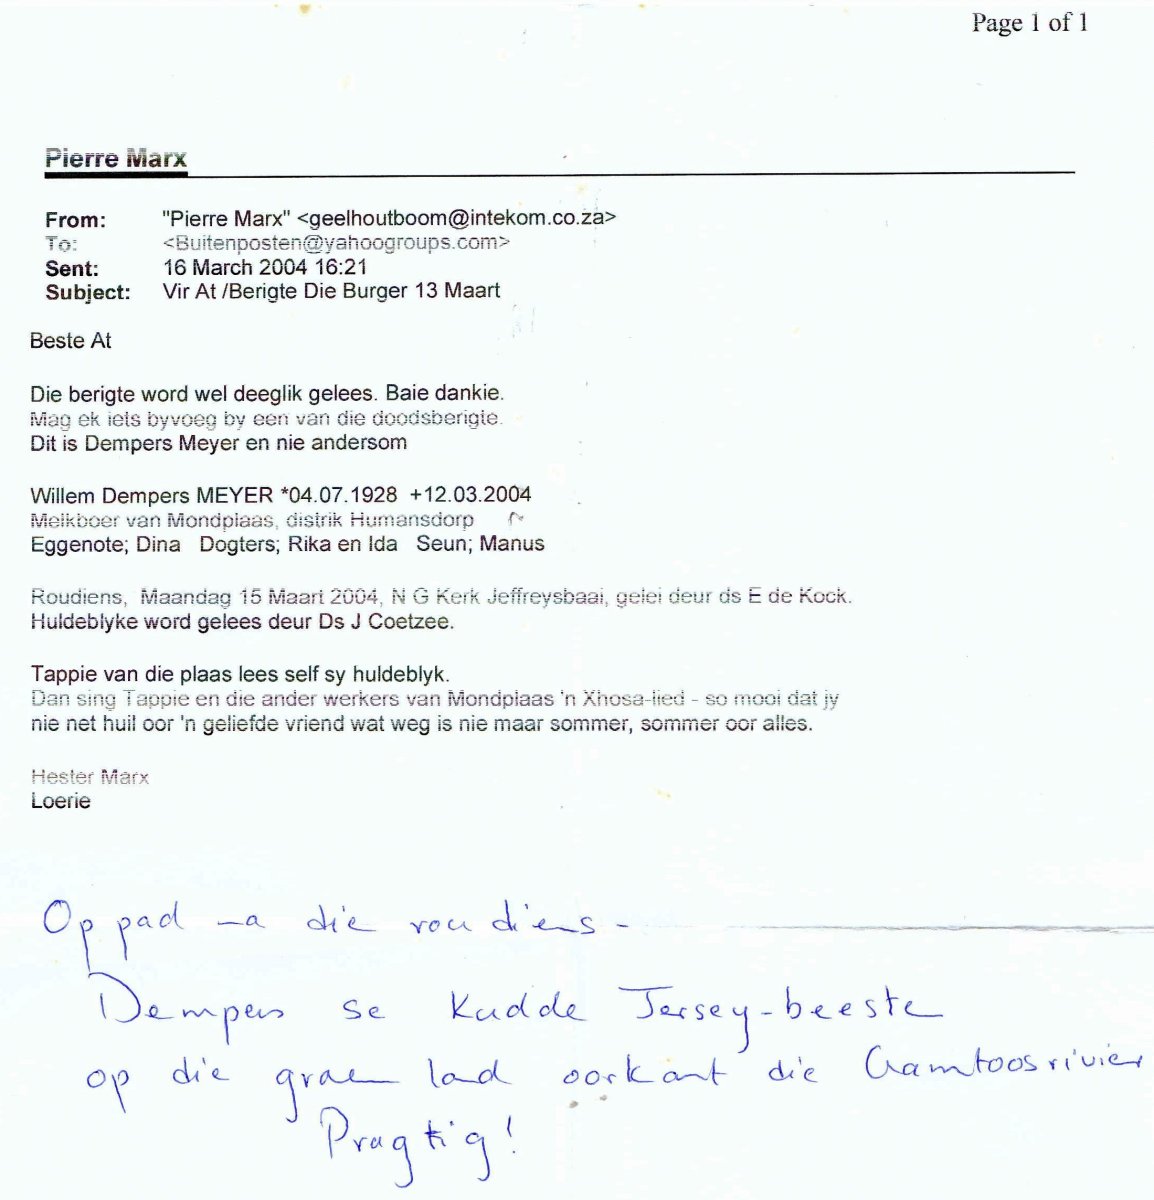 Page 1 of 1
Pierre Marx
From: "Pierre Marx" <geelhoutboom@intekom.co.za>
To: <Buitenposten@yahoogroups.com>
Sent: 16 March 2004 16:21
Subject: Vir At /Berigte Die Burger 13 Maart
Beste At
Die berigte word wel deeglik gelees. Baie dankie.
Mag ek iets byvoeg by een van die doodsberigte.
Dit is Dempers Meyer en nie andersom
Willem Dempers MEYER *04.07.1928 +12.03.2004
Melkboer van Mondplaas, distrik Humansdorp
Eggenote; Dina Dogters; Rika en Ida Seun; Manus
Roudiens, Maandag 15 Maart 2004, N G Kerk Jeffreysbaai, gelei deur ds E de Kock.
Huldeblyke word gelees deur Ds J Coetzee.
Tappie van die plaas lees self sy huldeblyk.
Dan sing Tappie en die ander werkers van Mondplaas 'n Xhosa-lied - so mooi dat jy
nie net huil oor 'n geliefde vriend wat weg is nie maar sommer, sommer oor alles.
Hester Marx
Loerie
Op pad na die roudiens -
Dempers se kudde Jersey-beeste
op die groen land oorkant die Gamtoosrivier
Pragtig!